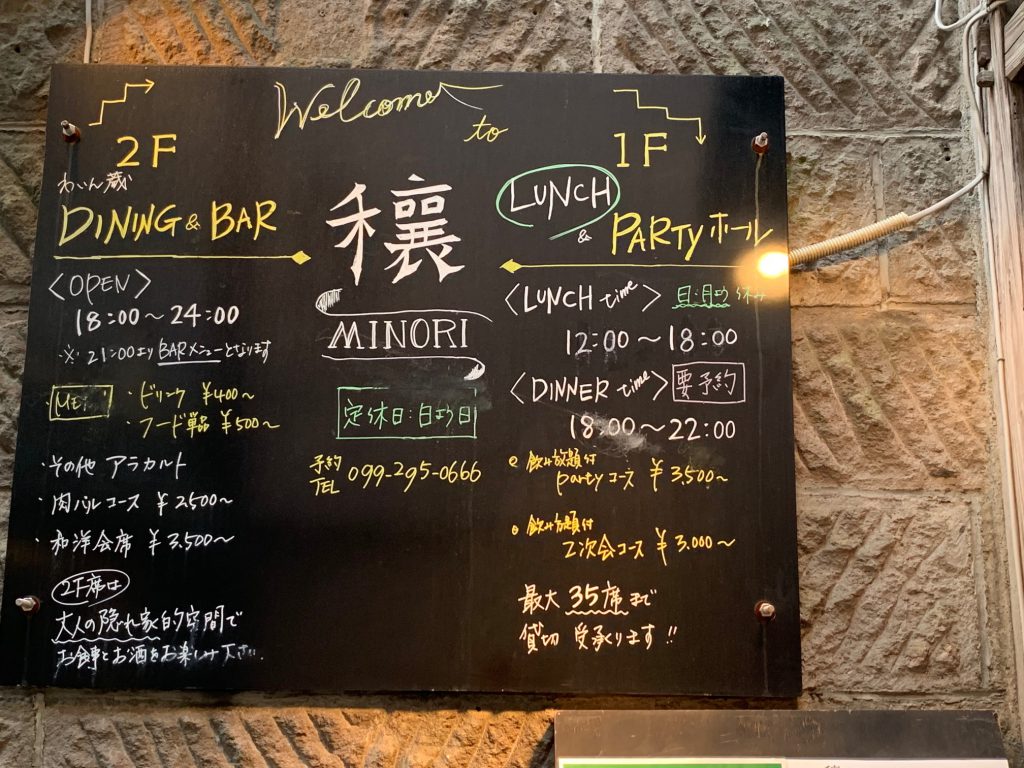 Welcome
to
2F
わいん蔵
DINING & BAR
<OPEN>
18:00~24:00
※21:00よりBARメニューとなります
・ドリンク ¥400~
・フード単品 ¥500~
・その他 アラカルト
・肉バルコース ¥2500~
・和洋会席 ¥3,500~
2F席は
大人の隠れ家的空間で
お食事とお酒をお楽しみ下さい.
穣
MINORI
定休日:日より日
予約
TEL 099-295-0666
1F
LUNCH
& PARTYホール
<LUNCH time> 日:月より休み
12:00~18:00
<DINNER time> 要予約
18:00~22:00
飲み放題付
partyコース ¥3,500~
飲み放題付
2次会コース ¥3,000~
最大 35席まで
貸切 受承ります!!